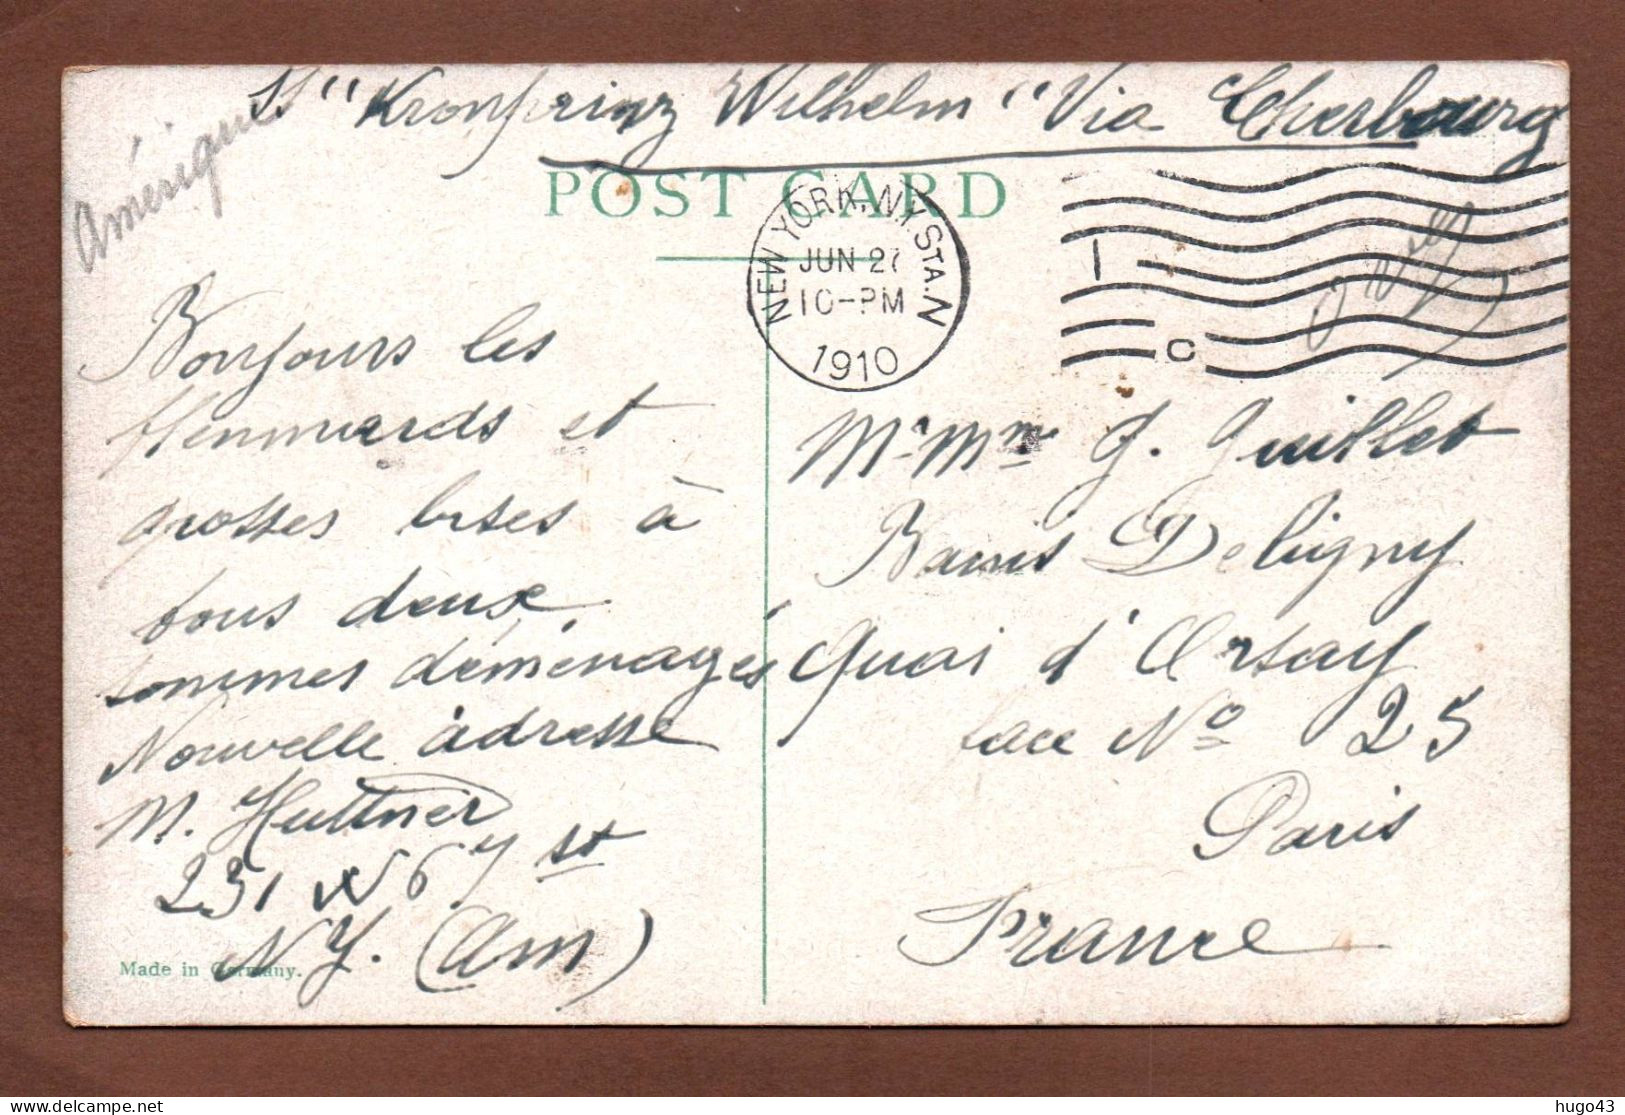 SS "Kronprinz Wilhelm" Via Cherbourg
Amérique
POST CARD
NEW YORK, N.Y. STA. N
JUN 27
10-PM
1910
1
C
Bonjours les
et
grosses bises à
tous deux
sommes déménagés
Nouvelle adresse
M. Huttner
231 W 67 st
N Y. (Am)
Made in Germany.
Mr Mme J. Guillet
Bains Deligny
Quai d'Orsay
face No 25
Paris
France
hugo43